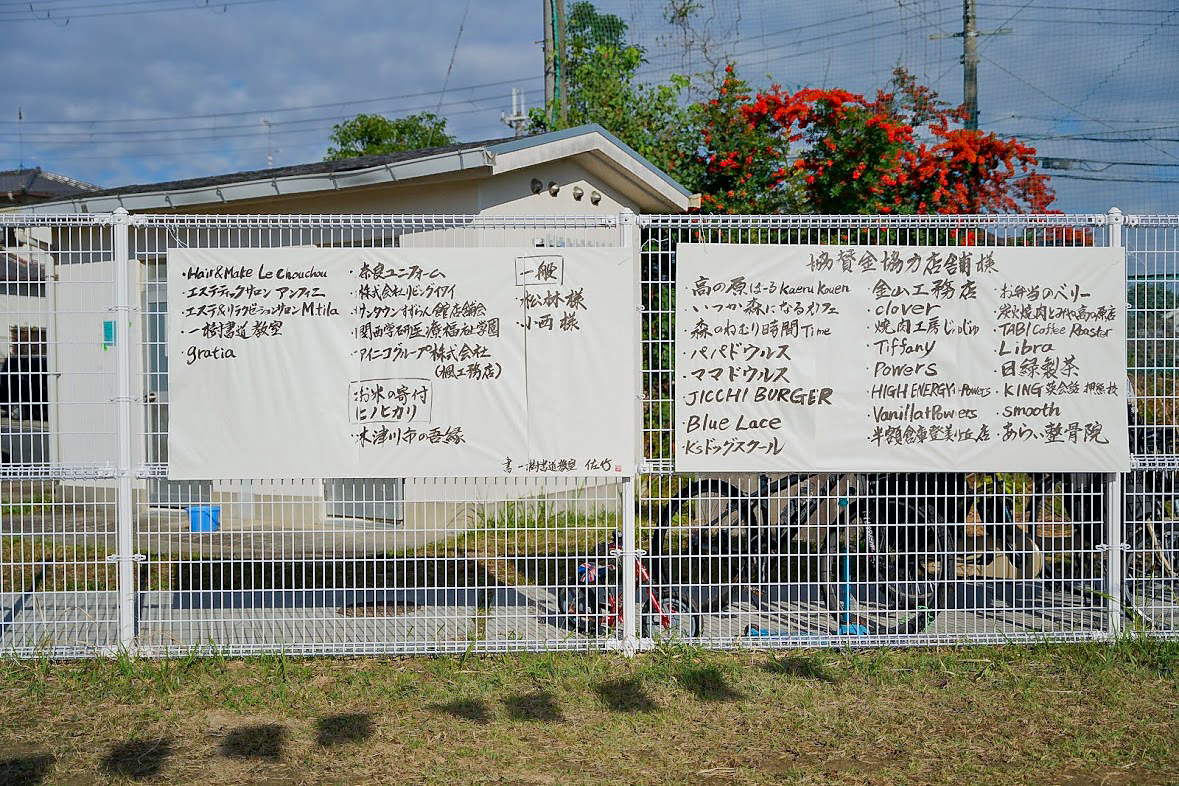 ・Hair&Make Le chouchou
・エステティックサロン アンフィニ
・エステ&リラクゼーションサロン Mtila
・一樹書道教室
・gratia
・奈良ユニフォーム
・株式会社リビングアイ
・サンタウンすずらん館店舗会
・関西学研医療福祉学園
・アイニコグループ株式会社
(楓工務店)
お米の寄付
ヒノヒカリ
・木津川市の吾縁
一般
・松林様
・小西様
書 一樹書道教室 佐竹
協賛金協力店舗様
・高の原はーるkaeru kuen
・いつか森になるカフェ
・森のねむり時間Time
・パパドウルス
・ママドウルス
・JICCHI BURGER
・Blue Lace
・K'sドッグスクール
・金山工務店
・clover
・焼肉工房じゅじゅ
・Tiffany
・Powers
・HIGH ENERGY+Powers
・Vanillat Powers
・半額倉庫登美ヶ丘店
・お弁当のベリー
・炭火焼肉とみや高の原店
・TABI Coffee Roaster
・Libra
・日緑製茶
・KING英会話 押熊校
・smooth
・あらい整骨院